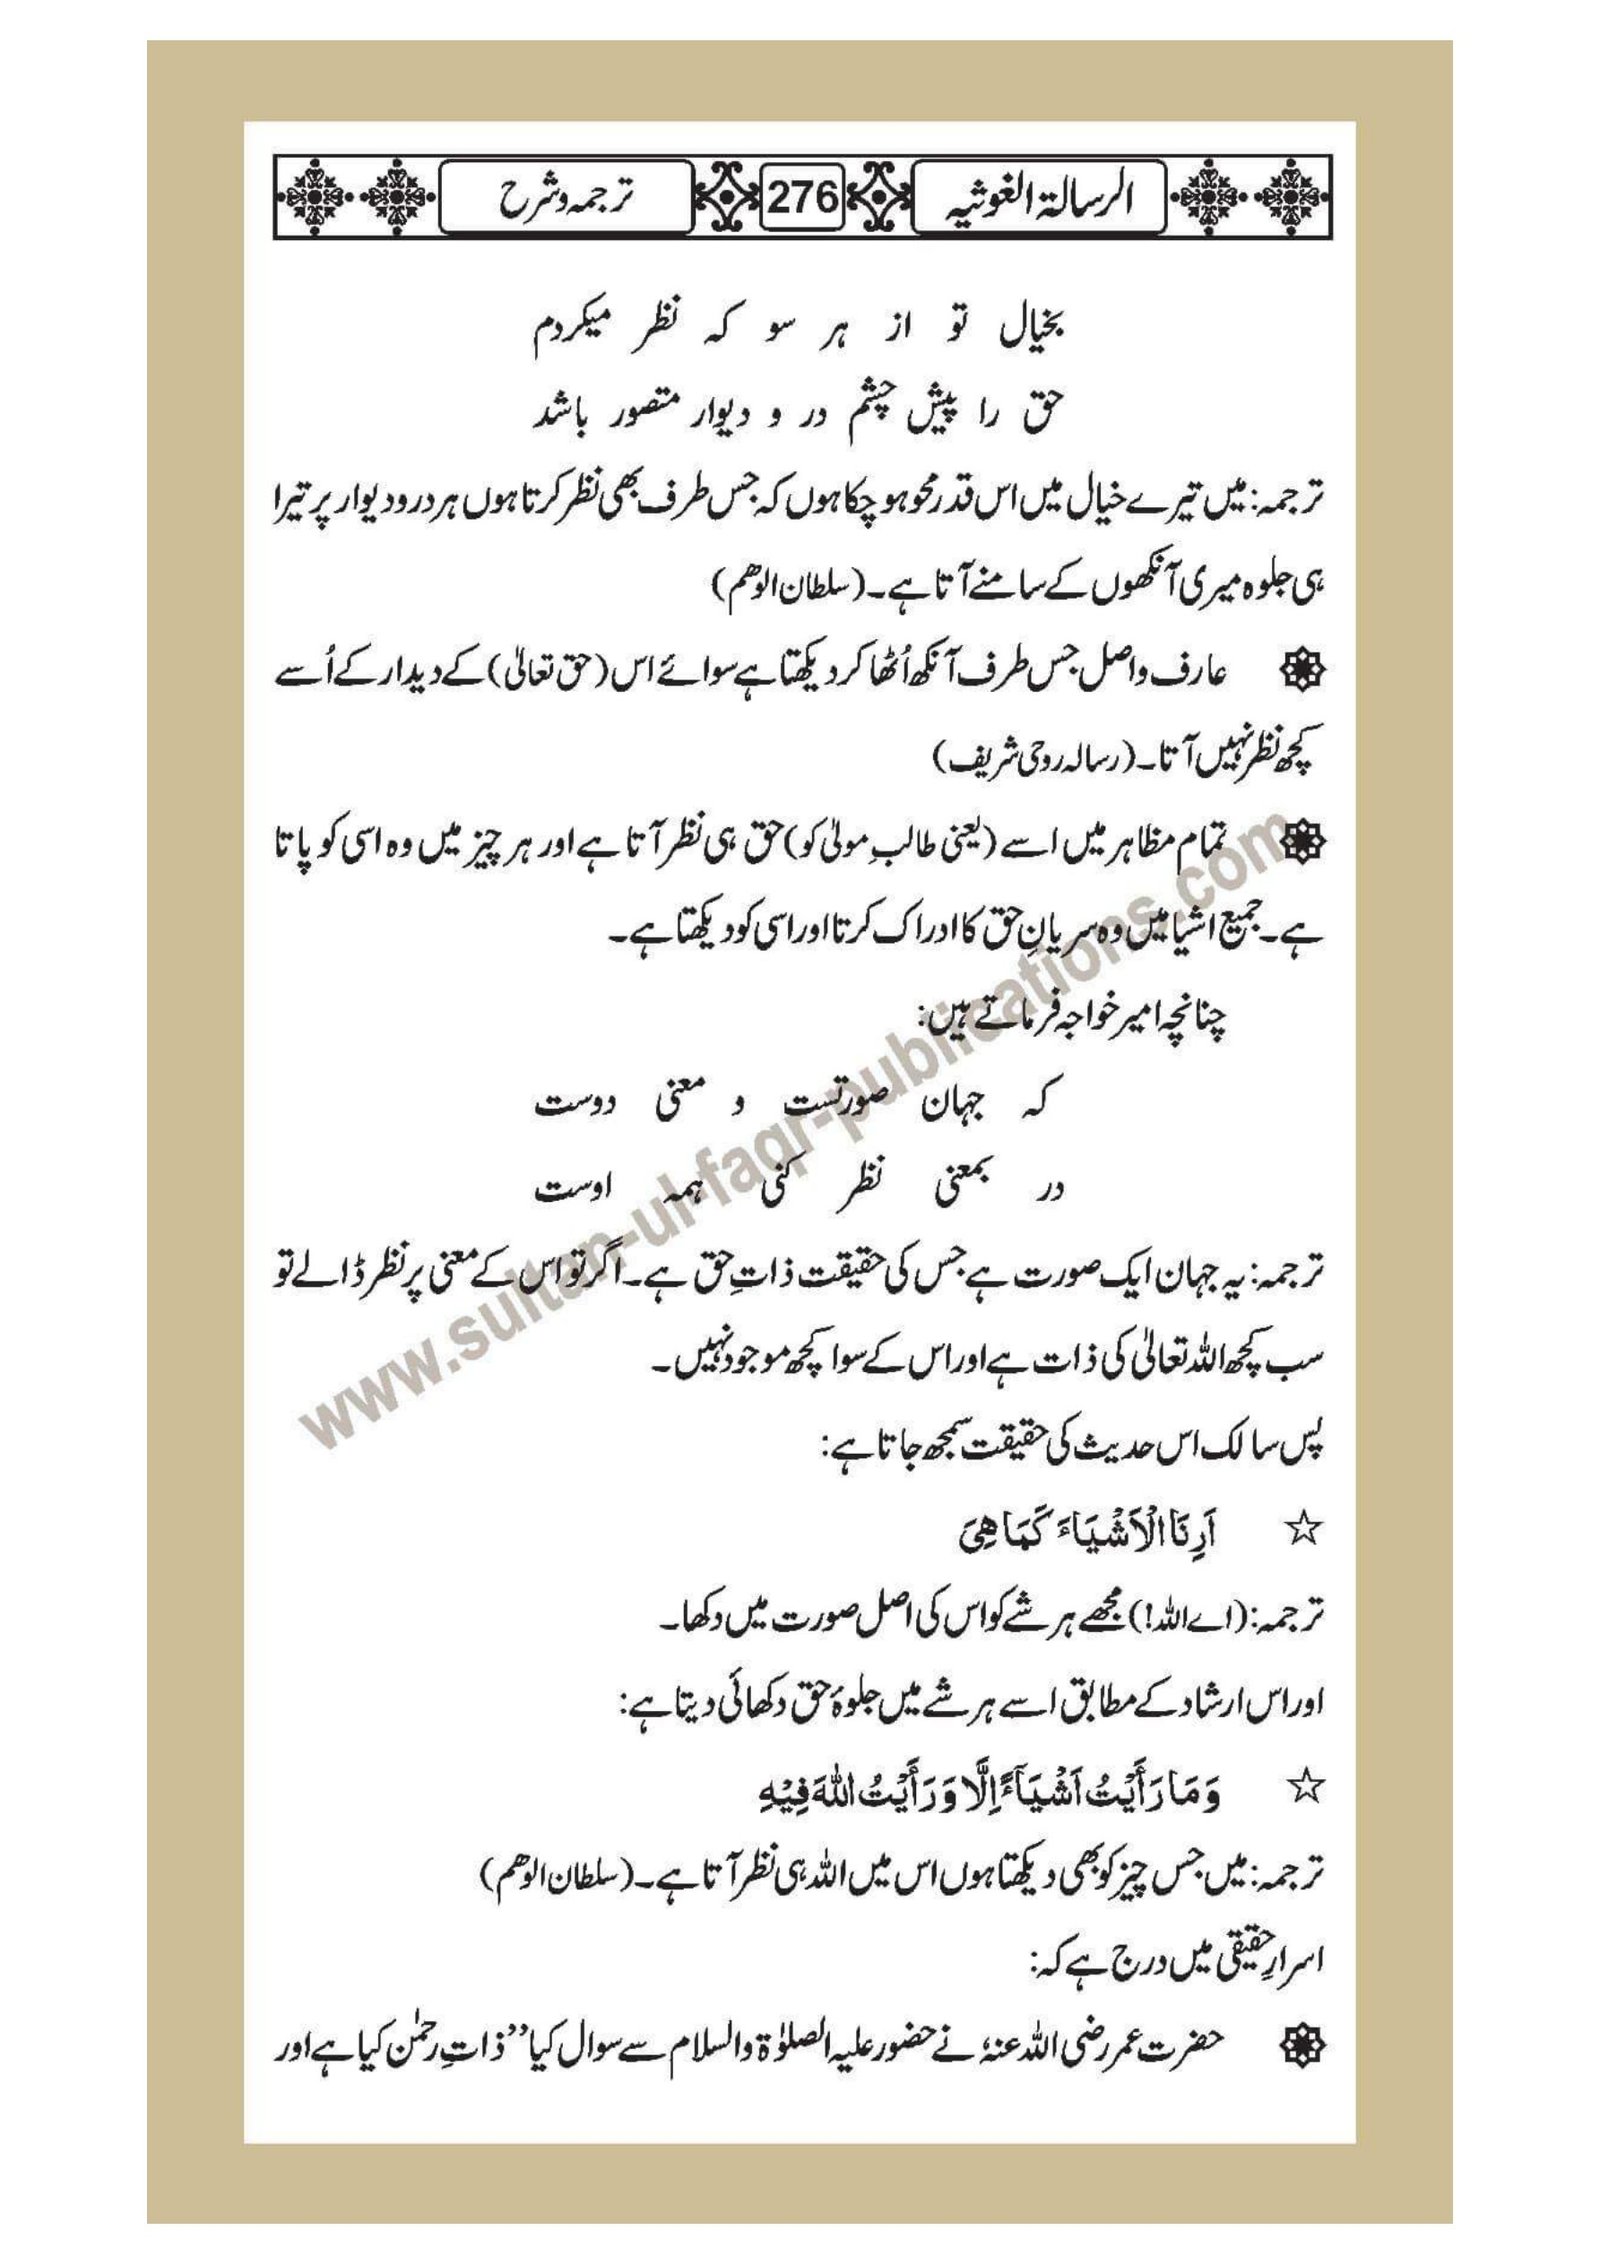 الرسالۃ الغوثیہ 276 ترجمہ و شرح
بخیال تو از ہر سو کہ نظر میکردم
حق را پیش چشم در و دیوار متصور باشد
ترجمہ: میں تیرے خیال میں اس قدر محو ہو چکا ہوں کہ جس طرف بھی نظر کرتا ہوں ہر در و دیوار پر تیرا
ہی جلوہ میری آنکھوں کے سامنے آتا ہے۔ (سلطان الوھم)
عارف واصل جس طرف آنکھ اُٹھا کر دیکھتا ہے سوائے اس (حق تعالیٰ) کے دیدار کے اُسے
کچھ نظر نہیں آتا۔ (رسالہ روحی شریف)
تمام مظاہر میں اسے (یعنی طالبِ مولیٰ کو) حق ہی نظر آتا ہے اور ہر چیز میں وہ اسی کو پاتا
ہے۔ جمیع اشیا میں وہ سریانِ حق کا ادراک کرتا اور اسی کو دیکھتا ہے۔
چنانچہ امیر خواجہ فرماتے ہیں:
کہ جہان صورتست و معنی دوست
در بمعنی نظر کنی ہمہ اوست
ترجمہ: یہ جہان ایک صورت ہے جس کی حقیقت ذاتِ حق ہے۔ اگر تو اس کے معنی پر نظر ڈالے تو
سب کچھ اللہ تعالیٰ کی ذات ہے اور اس کے سوا کچھ موجود نہیں۔
پس سالک اس حدیث کی حقیقت سمجھ جاتا ہے:
☆ اَرِنَا الْاَشْیَاءَ کَمَا ھِیَ
ترجمہ: (اے اللہ!) مجھے ہر شے کو اس کی اصل صورت میں دکھا۔
اور اس ارشاد کے مطابق اسے ہر شے میں جلوۂ حق دکھائی دیتا ہے:
☆ وَمَا رَأَیْتُ اَشْیَآءً اِلَّا وَرَأَیْتُ اللہَ فِیْہِ
ترجمہ: میں جس چیز کو بھی دیکھتا ہوں اس میں اللہ ہی نظر آتا ہے۔ (سلطان الوھم)
اسرارِ حقیقی میں درج ہے کہ:
حضرت عمر رضی اللہ عنہٗ نے حضور علیہ الصلوٰۃ والسلام سے سوال کیا ”ذاتِ رحمٰن کیا ہے اور
www.sultan-ul-faqr-publications.com